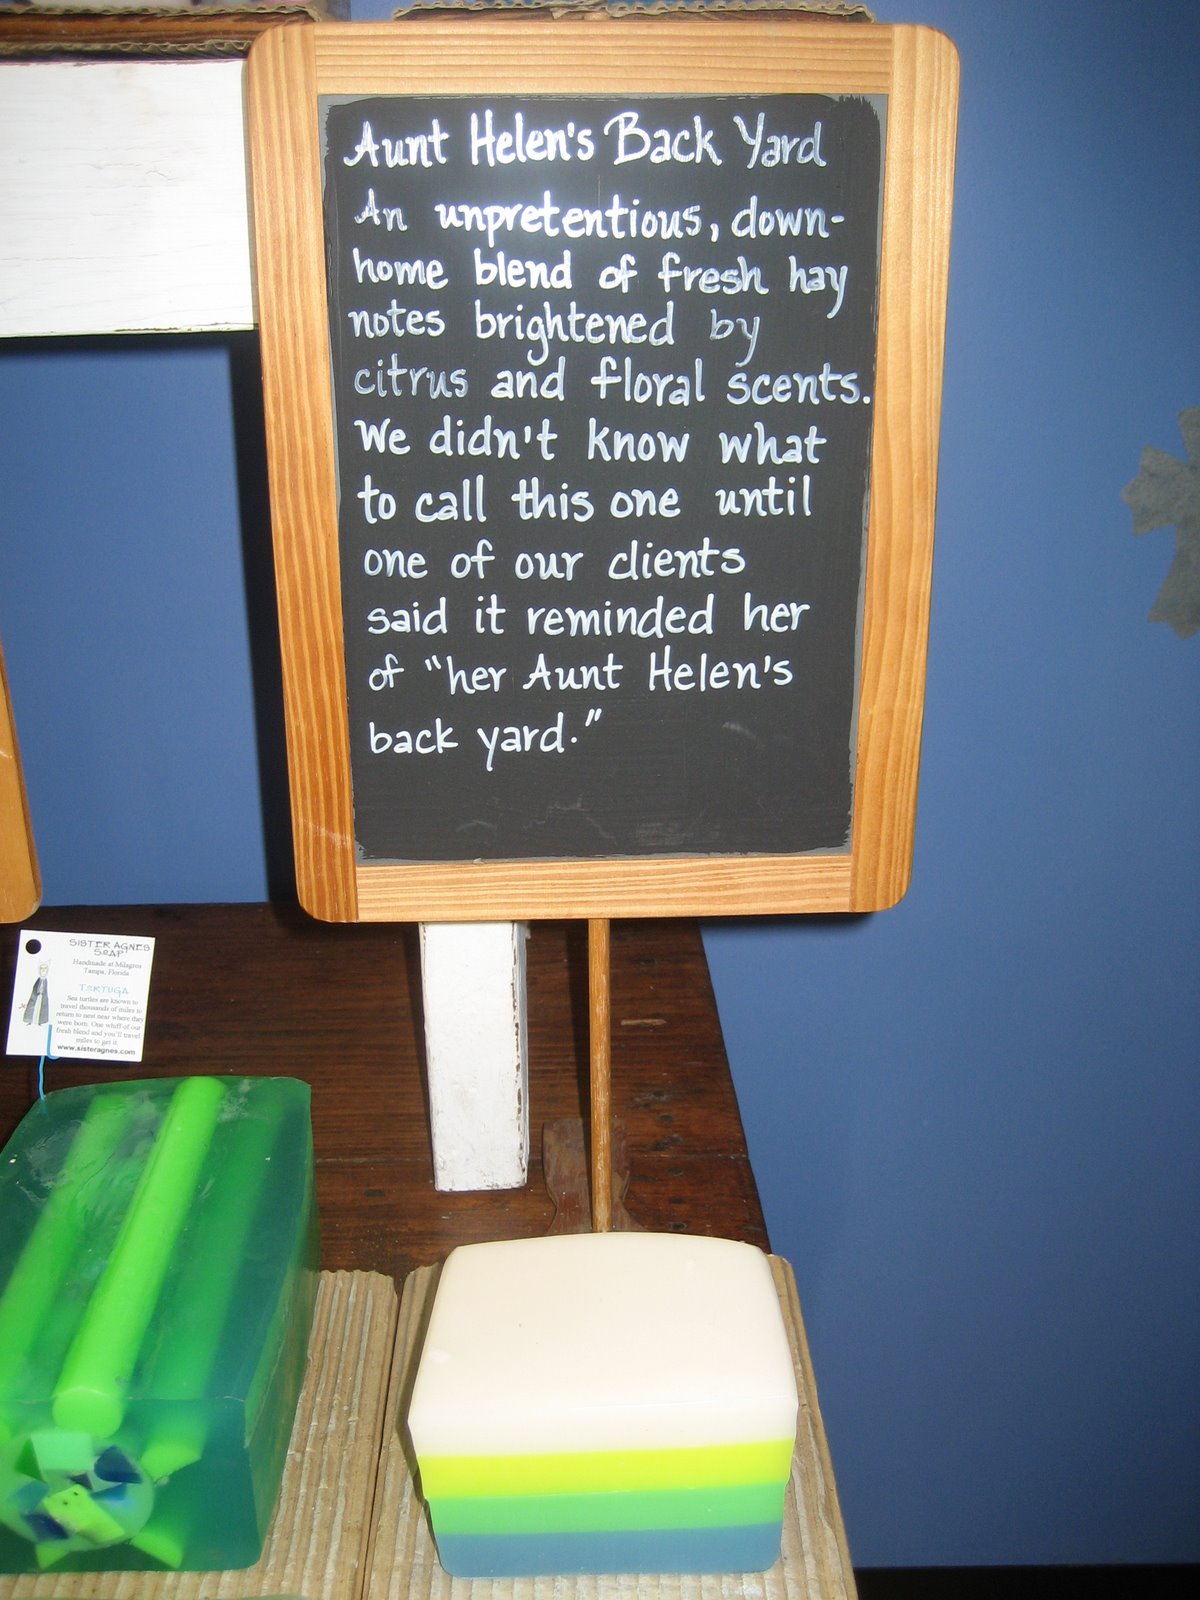 Aunt Helen's Back Yard
An unpretentious, down-
home blend of fresh hay
notes brightened by
citrus and floral scents.
We didn't know what
to call this one until
one of our clients
said it reminded her
of "her Aunt Helen's
back yard."
SISTER AGNES
SOAP
Handmade at Milagros
Tampa, Florida
TORTUGA
Sea turtles are known to
travel thousands of miles to
return to nest near where they
were born. One whiff of our
fresh blend and you'll travel
miles to get it.
www.sisteragnes.com